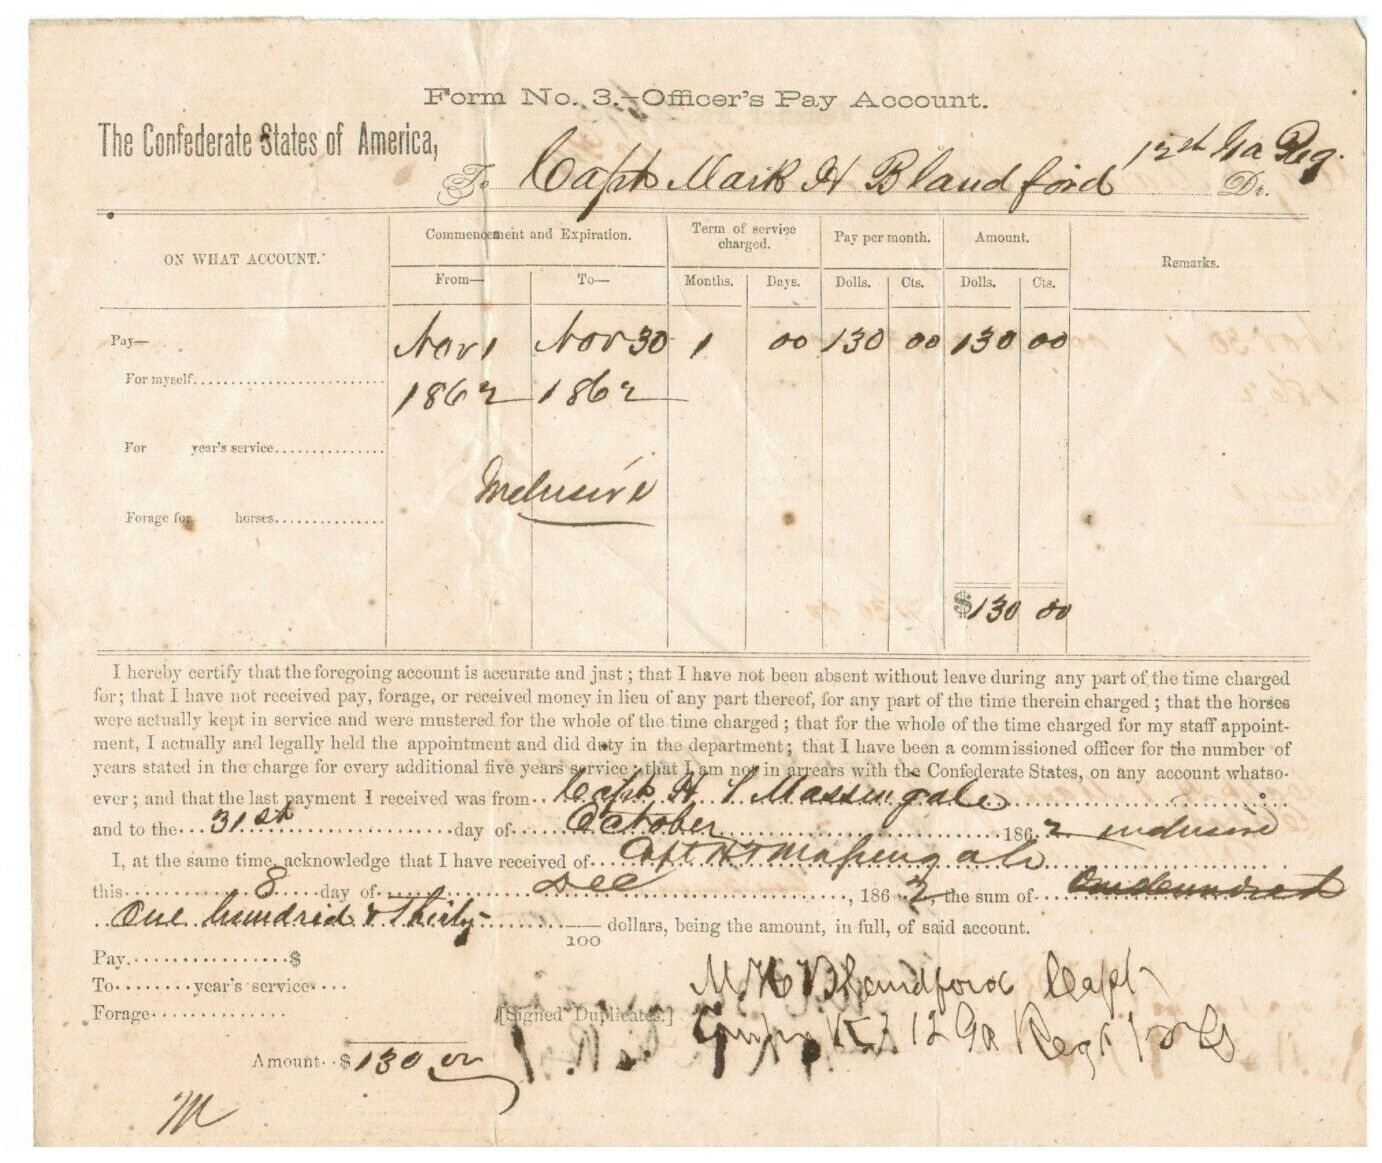 Form No. 3.—Officer's Pay Account.
The Confederate States of America,
To Capt Mark H Blandford 12th Ga Reg. Dr.
ON WHAT ACCOUNT. Commencement and Expiration. Term of service charged. Pay per month. Amount. Remarks.
From— To— Months. Days. Dolls. Cts. Dolls. Cts.
Pay— Nov 1 Nov 30 1 00 130 00 130 00
For myself 1862 1862
For year's service
Inclusive
Forage for horses
$130 00
I hereby certify that the foregoing account is accurate and just; that I have not been absent without leave during any part of the time charged
for; that I have not received pay, forage, or received money in lieu of any part thereof, for any part of the time therein charged; that the horses
were actually kept in service and were mustered for the whole of the time charged; that for the whole of the time charged for my staff appoint-
ment, I actually and legally held the appointment and did duty in the department; that I have been a commissioned officer for the number of
years stated in the charge for every additional five years service; that I am not in arrears with the Confederate States, on any account whatso-
ever; and that the last payment I received was from Capt H T Massengale
and to the 31st day of October 1862 inclusive
I, at the same time, acknowledge that I have received of Capt H T Massengale
this 8 day of Dec, 1862 the sum of One hundred
One hundred & Thirty — /100 dollars, being the amount, in full, of said account.
Pay $
To year's service
Forage
[Signed Duplicates.]
M. H. Blandford Capt
K 12 Ga Regt
Amount $130 00
M